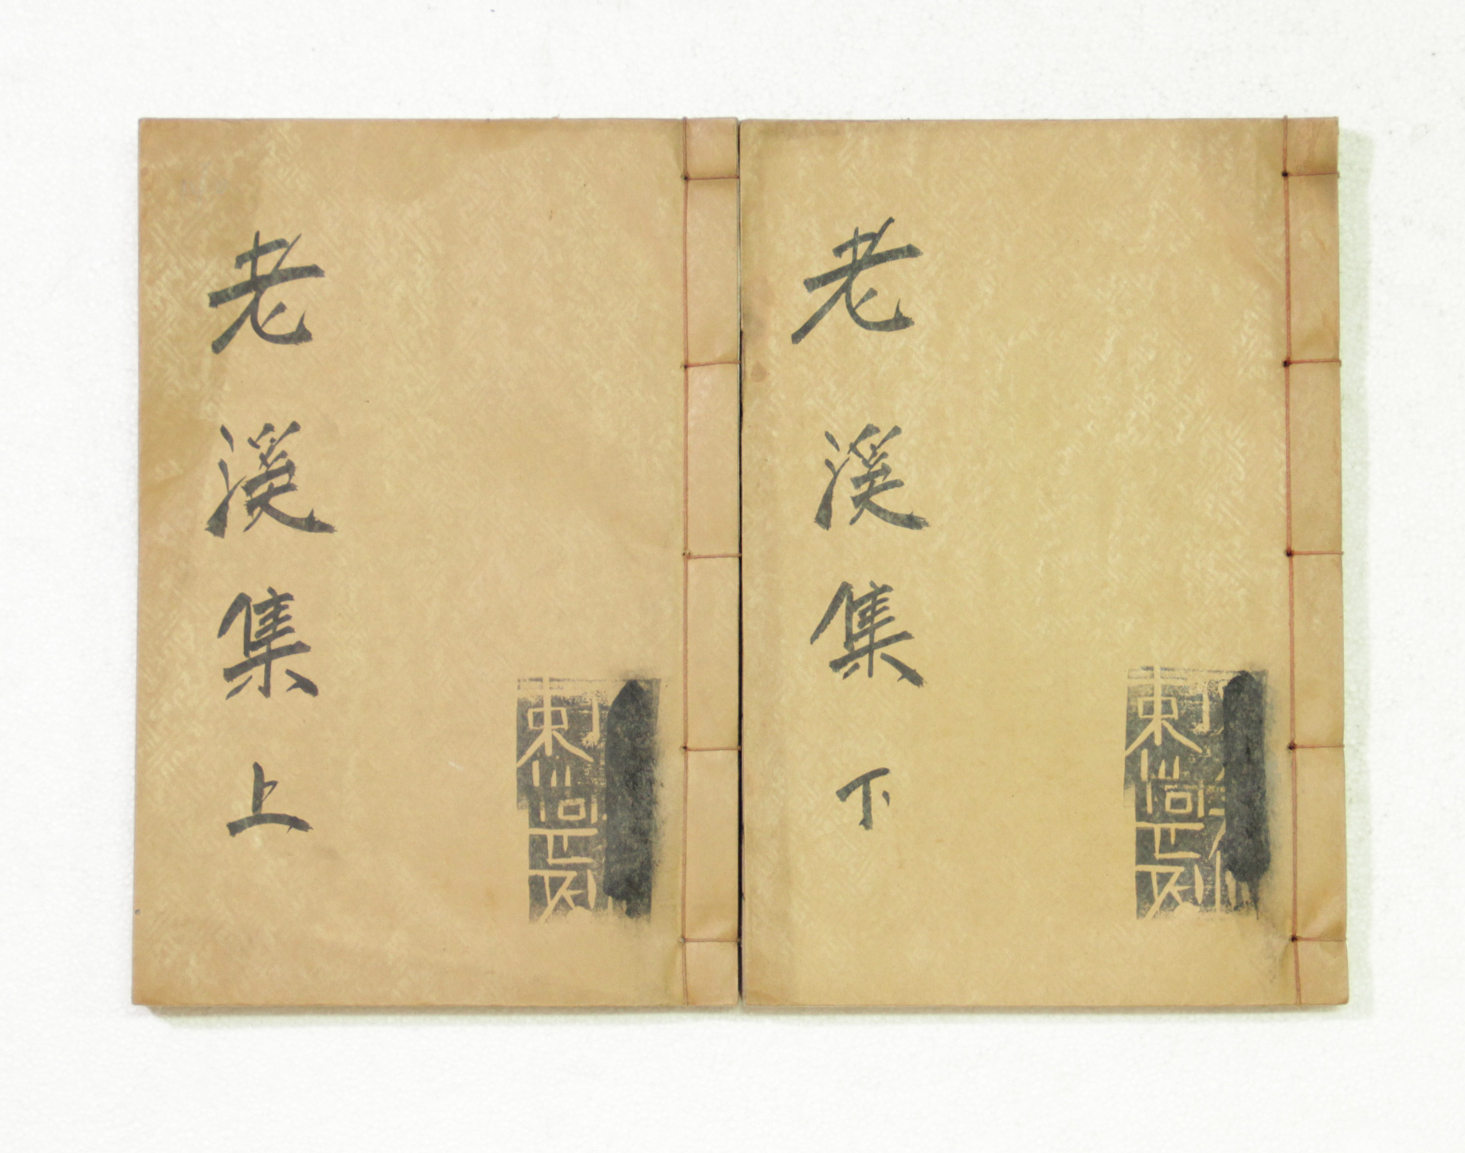 老溪集下
老溪集上